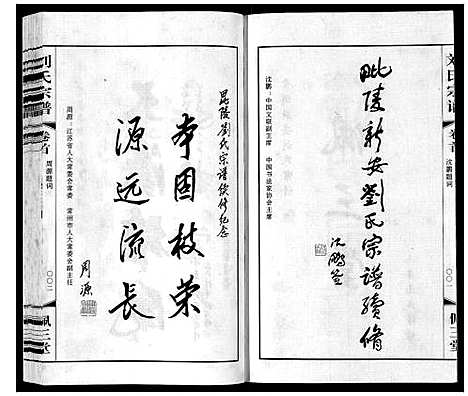 刘氏宗谱
卷首
沈鹏题词
〇〇一
佩三堂
毗陵新安劉氏宗譜續修
沈鹏签
沈鹏:中国文联副主席 中国书法家协会主席
昆陵劉氏宗谱续修纪念
本固枝荣
源远流长
周源
周源:江苏省人大常委会常委 常州市人大常委会副主任
刘氏宗谱
卷首
周源题词
〇〇二
佩三堂